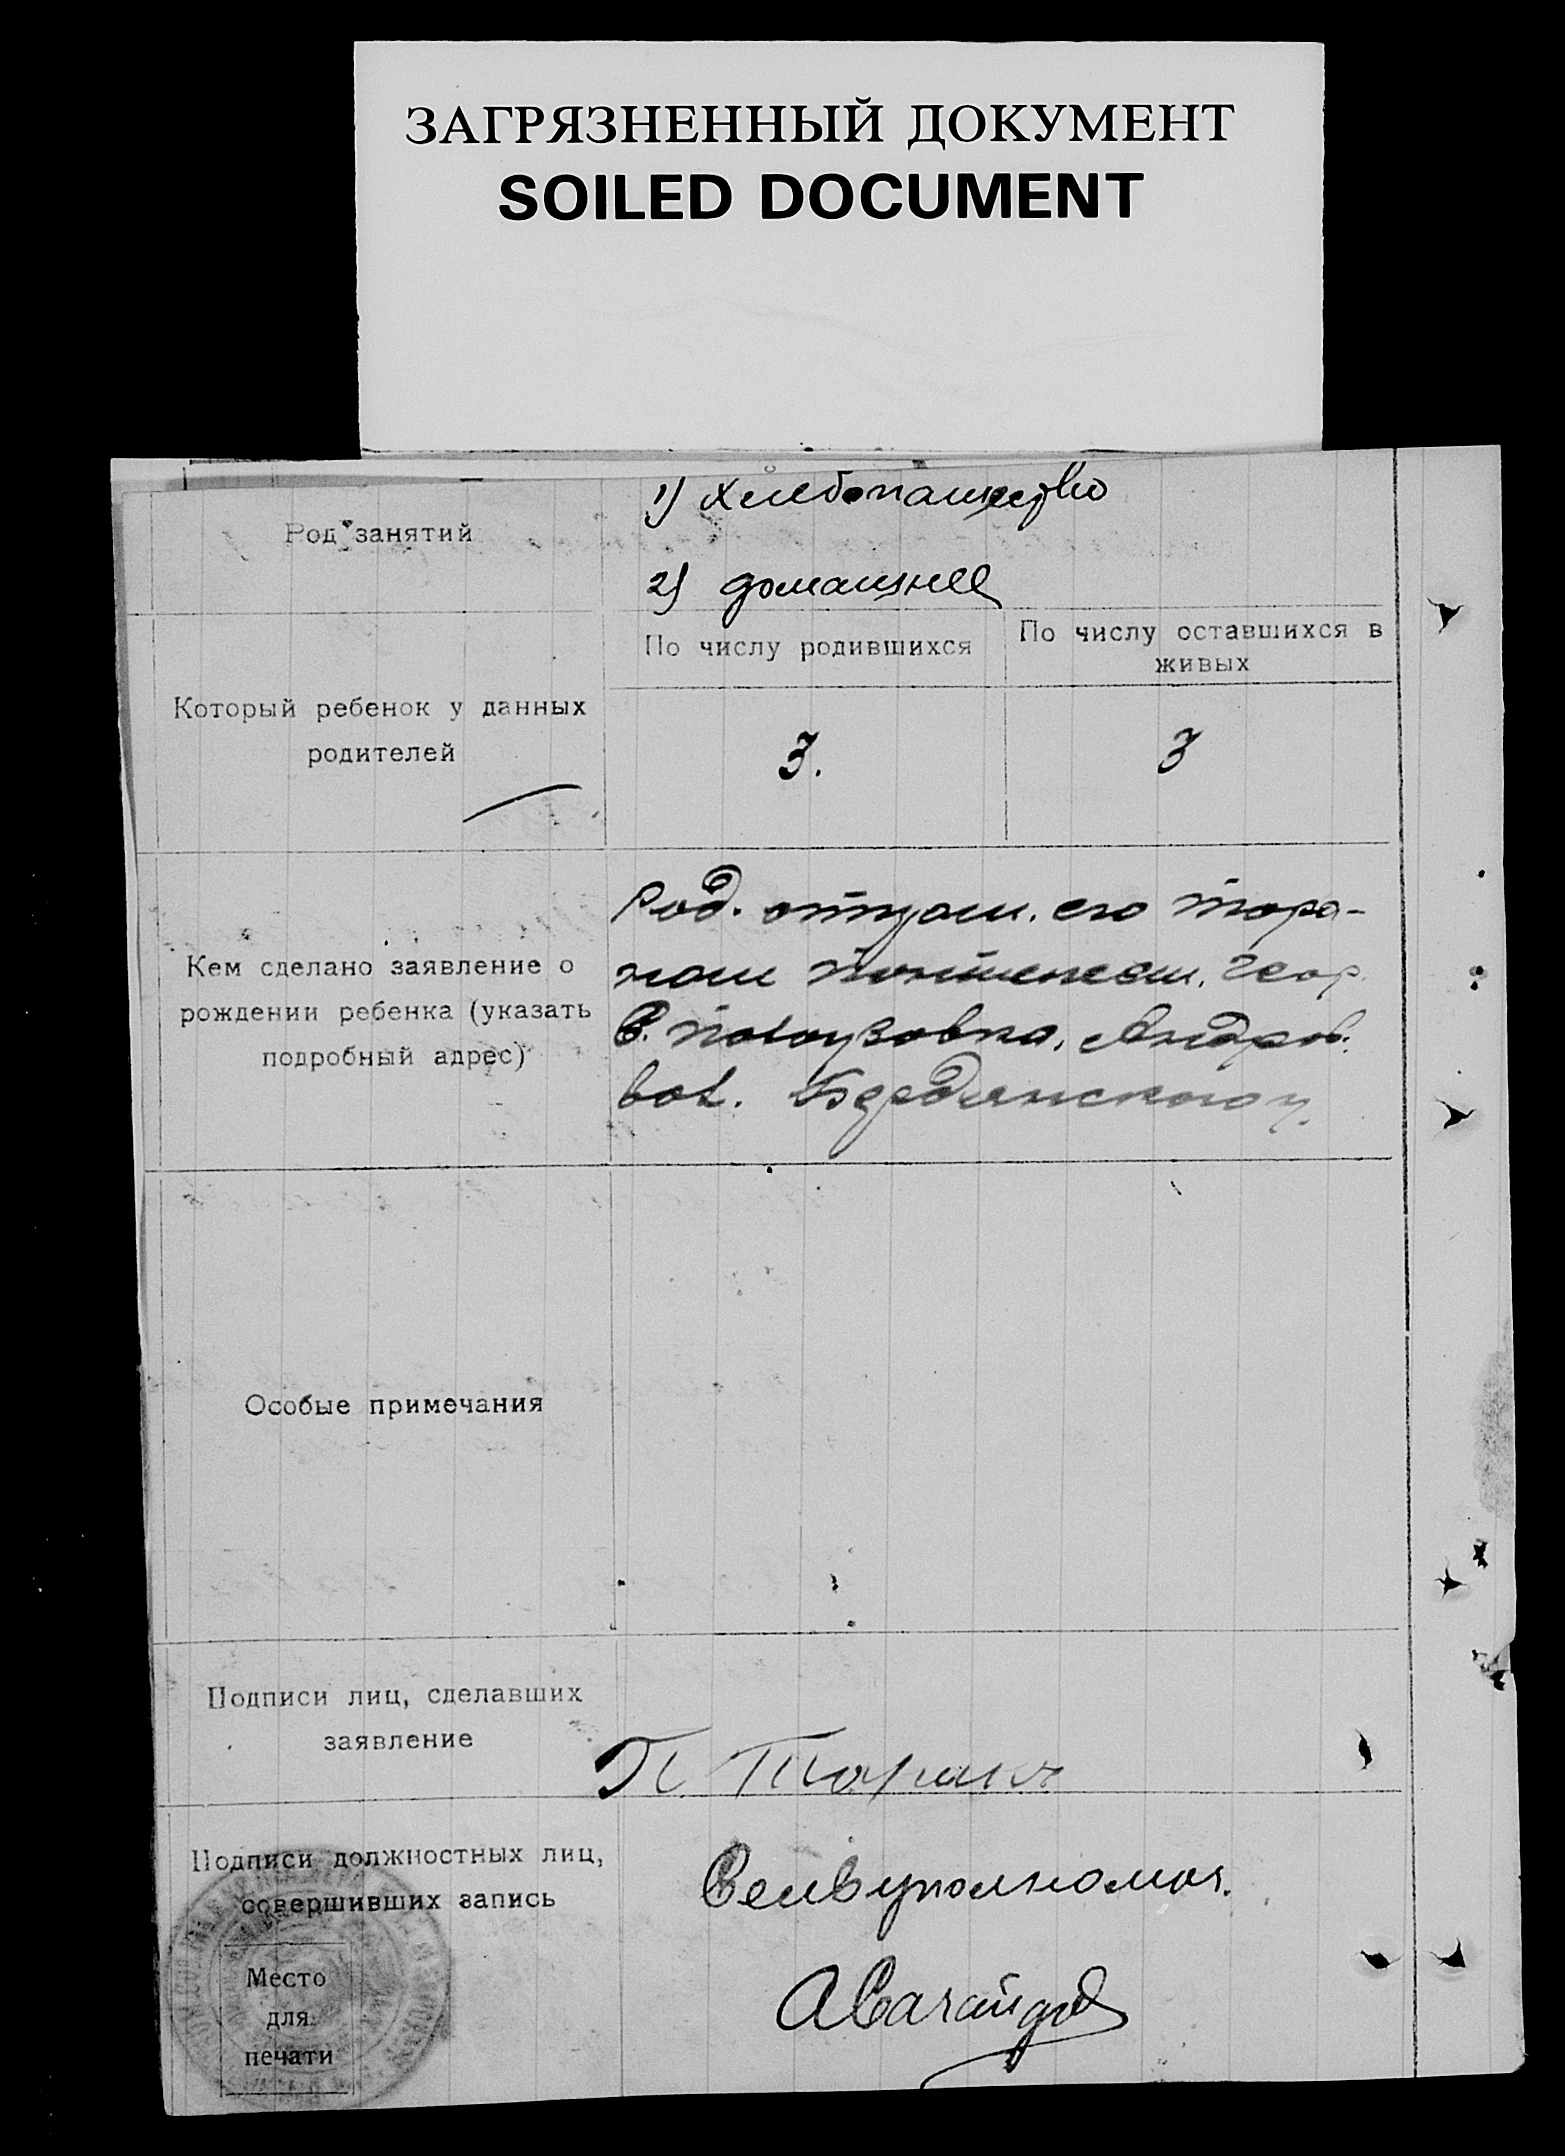 ЗАГРЯЗНЕННЫЙ ДОКУМЕНТ
SOILED DOCUMENT
Род занятий
1) Хлебопашество
2) домашнее
Который ребенок у данных
родителей
По числу родившихся
По числу оставшихся в
живых
3.
3
Кем сделано заявление о
рождении ребенка (указать
подробный адрес)
Род. отцом. его
С. Андров.
вол. Бердянского у.
Особые примечания
Подписи лиц, сделавших
заявление
П.
Подписи должностных лиц,
совершивших запись
Место
для
печати